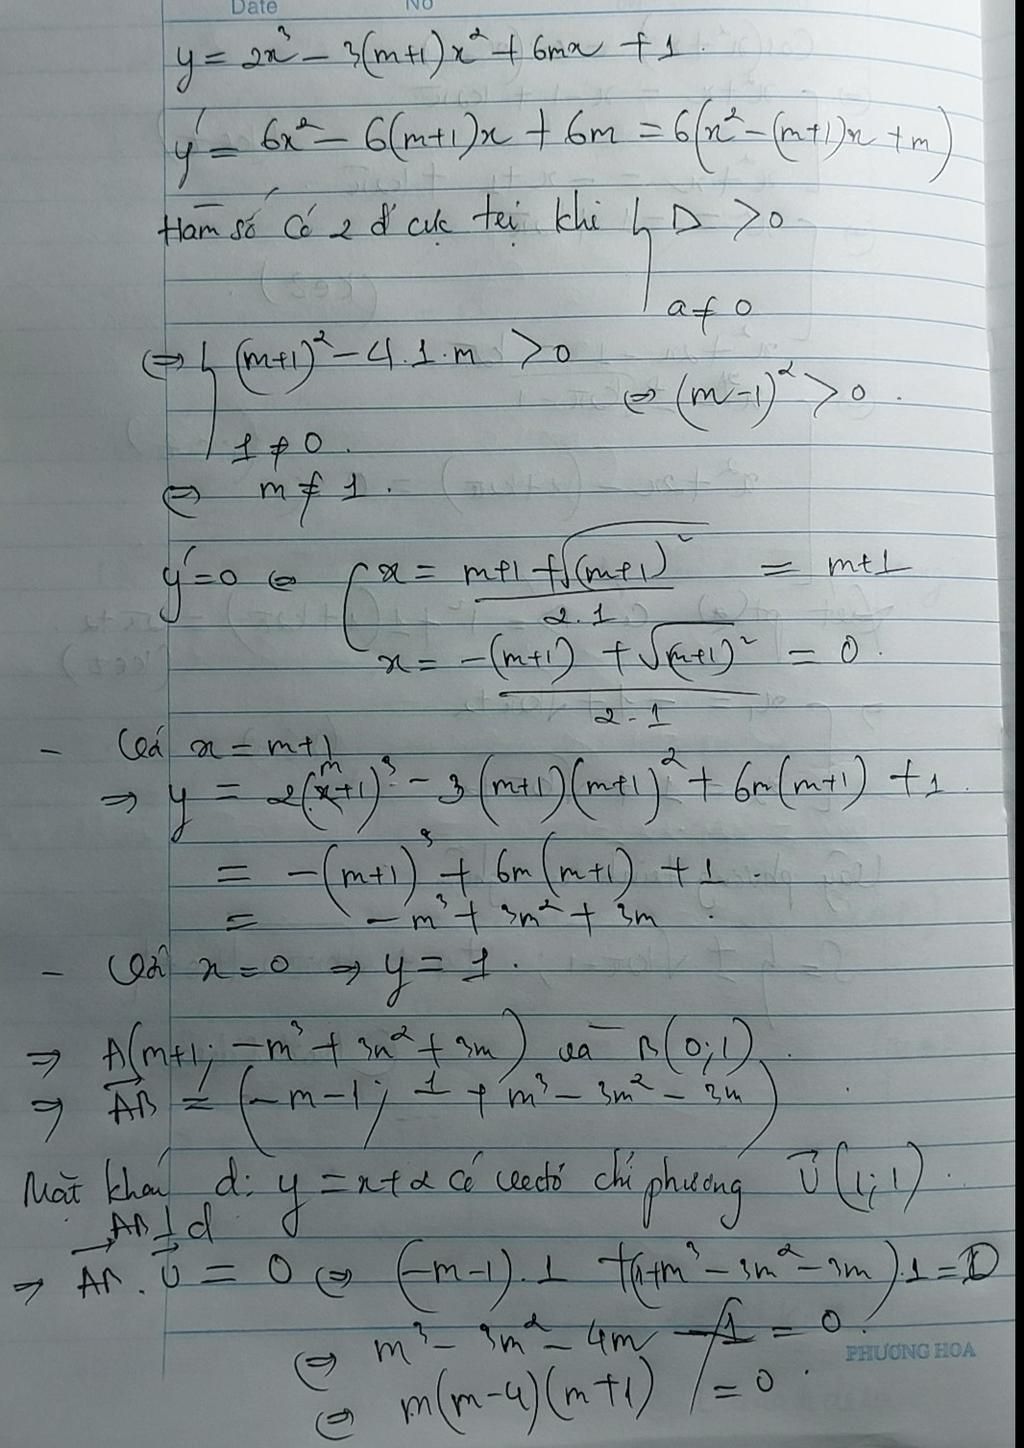 Date No
y = 2x³ - 3(m+1)x² + 6mx + 1.
y' = 6x² - 6(m+1)x + 6m = 6(x² - (m+1)x + m)
Hàm số có 2 đ' cực trị khi { D > 0
a ≠ 0
⇔ { (m+1)² - 4.1.m > 0
⇔ (m-1)² > 0.
1 ≠ 0.
⇔ m ≠ 1.
y' = 0 ⇔ [ x = (m+1 + √(m+1)²)/2.1 = m+1
x = (-(m+1) + √(m+1)²)/2.1 = 0.
- Với x = m+1
⇒ y = 2(m+1)³ - 3(m+1)(m+1)² + 6m(m+1) + 1.
= -(m+1)³ + 6m(m+1) + 1.
= -m³ + 3m² + 3m.
- Với x = 0 ⇒ y = 1.
⇒ A(m+1; -m³ + 3m² + 3m) và B(0;1).
⇒ AB = (-m-1; 1 + m³ - 3m² - 3m)
Mặt khác d: y = x+2 có vectơ chỉ phương U(1;1).
AB ⊥ d
⇒ AB . U = 0 ⇔ (-m-1).1 + (1+m³ - 3m² - 3m).1 = 0
⇔ m³ - 3m² - 4m = 0.
⇔ m(m-4)(m+1) = 0.
PHƯƠNG HOA